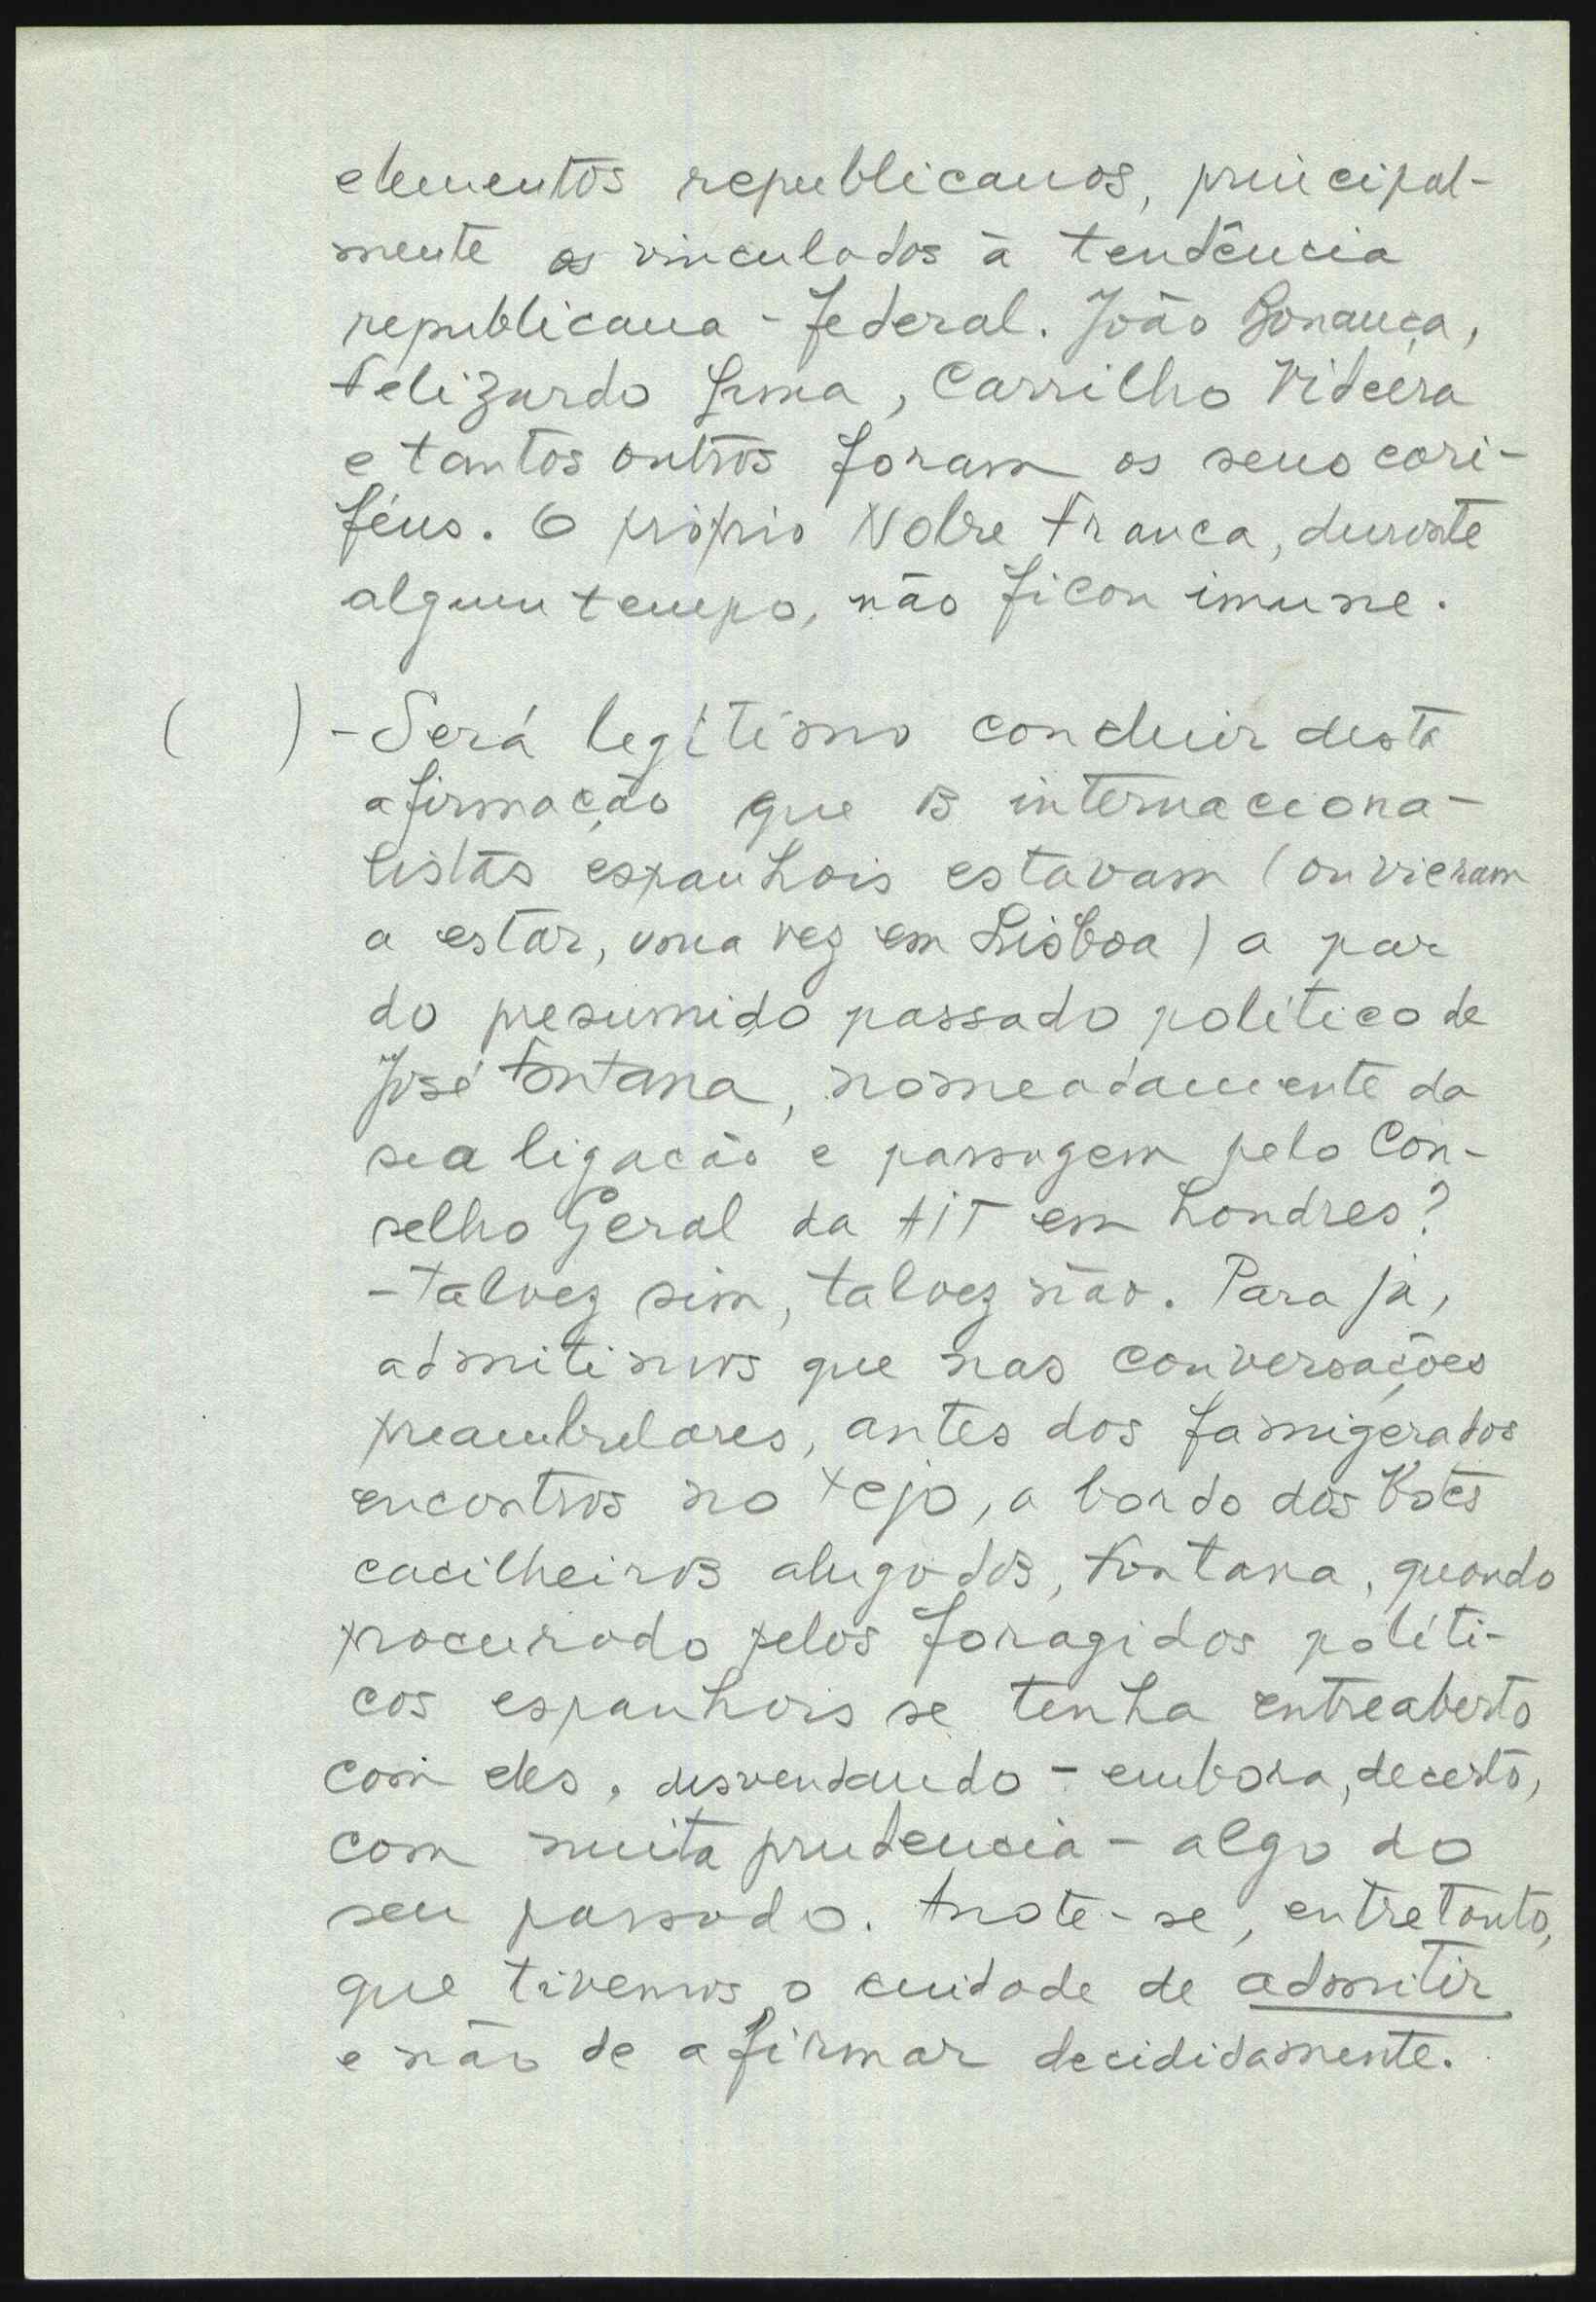 elementos republicanos, principal-
mente os vinculados à tendência
republicana-federal. João Bonança,
Felizardo Lima, Carrilho Videira
e tantos outros foram os seus cori-
féus. O próprio Nobre França, durante
algum tempo, não ficou imune.
( ) - Será legítimo concluir desta
afirmação que os internaciona-
listas espanhois estavam (ou vieram
a estar, uma vez em Lisboa) a par
do presumido passado político de
José Fontana, nomeadamente da
sua ligação e passagem pelo Con-
selho Geral da AIT em Londres?
- Talvez sim, talvez não. Para já,
admitimos que nas conversações
preambulares, antes dos famigerados
encontros no Tejo, a bordo dos botes
cacilheiros alugados, Fontana, quando
procurado pelos foragidos políti-
cos espanhois se tenha entreaberto
com eles, desvendando - embora, decerto,
com muita prudencia - algo do
seu passado. Anote-se, entretanto,
que tivemos o cuidado de admitir
e não de afirmar decididamente.